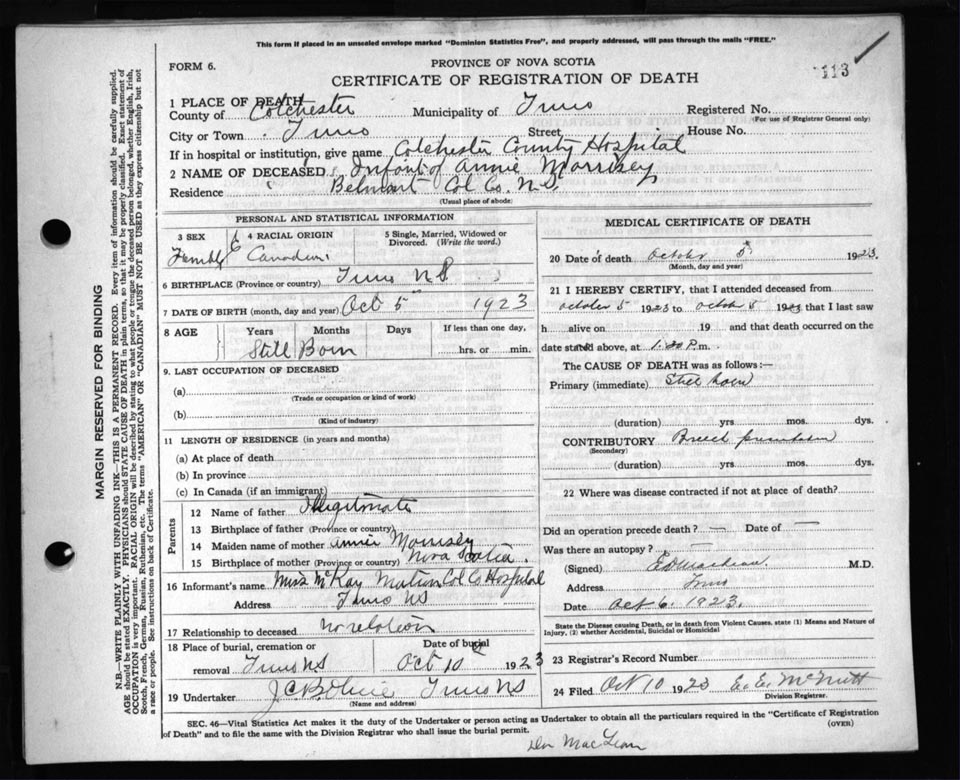 This form if placed in an unsealed envelope marked "Dominion Statistics Free", and properly addressed, will pass through the mails "FREE."
FORM 6.
PROVINCE OF NOVA SCOTIA
CERTIFICATE OF REGISTRATION OF DEATH
113
1 PLACE OF DEATH
County of Colchester Municipality of Truro Registered No.
(For use of Registrar General only)
City or Town Truro Street House No.
If in hospital or institution, give name Colchester County Hospital
2 NAME OF DECEASED Infant of Annie Morrisey
Residence Belmont Col Co. N.S.
(Usual place of abode)
PERSONAL AND STATISTICAL INFORMATION
3 SEX 4 RACIAL ORIGIN 5 Single, Married, Widowed or Divorced. (Write the word.)
Canadian
6 BIRTHPLACE (Province or country) Truro N S
7 DATE OF BIRTH (month, day and year) Oct 5 1923
8 AGE Years Months Days If less than one day,
Still Born hrs. or min.
9. LAST OCCUPATION OF DECEASED
(a)
(Trade or occupation or kind of work)
(b)
(Kind of industry)
11 LENGTH OF RESIDENCE (in years and months)
(a) At place of death
(b) In province
(c) In Canada (if an immigrant)
Parents
12 Name of father Illegitimate
13 Birthplace of father (Province or country)
14 Maiden name of mother Annie Morrisey
15 Birthplace of mother (Province or country) Nova Scotia
16 Informant's name Miss McKay Matron Col Co Hospital
Address Truro NS
17 Relationship to deceased no relation
18 Place of burial, cremation or removal Truro NS Date of burial Oct 10 1923
19 Undertaker Truro NS
(Name and address)
MEDICAL CERTIFICATE OF DEATH
20 Date of death October 5 1923
(Month, day and year)
21 I HEREBY CERTIFY, that I attended deceased from
October 5 1923 to October 5 1923 that I last saw
h alive on 19 and that death occurred on the
date stated above, at P.m.
The CAUSE OF DEATH was as follows:—
Primary (immediate) Still born
(duration) yrs mos. dys.
CONTRIBUTORY Breech presentation
(Secondary)
(duration) yrs mos. dys.
22 Where was disease contracted if not at place of death?
Did an operation precede death? — Date of —
Was there an autopsy? —
(Signed) M.D.
Address Truro
Date Oct 6. 1923.
State the Disease causing Death, or in death from Violent Causes, state (1) Means and Nature of Injury, (2) whether Accidental, Suicidal or Homicidal
23 Registrar's Record Number
24 Filed Oct 10 1923 E. E. McNutt
Division Registrar.
SEC. 46—Vital Statistics Act makes it the duty of the Undertaker or person acting as Undertaker to obtain all the particulars required in the "Certificate of Registration of Death" and to file the same with the Division Registrar who shall issue the burial permit.
(OVER)
Dr MacLean
MARGIN RESERVED FOR BINDING
N.B.—WRITE PLAINLY WITH UNFADING INK—THIS IS A PERMANENT RECORD. Every item of information should be carefully supplied.
AGE should be stated EXACTLY. PHYSICIANS should STATE CAUSE OF DEATH in plain terms, so that it may be properly classified. Exact statement of
OCCUPATION is very important. RACIAL ORIGIN will be described by stating to what people or tongue the deceased person belonged, whether English, Irish,
Scotch, French, German, Russian, Ruthenian, etc. The terms "AMERICAN" OR "CANADIAN" MUST NOT BE USED as they express citizenship but not
a race or people. See instructions on back of Certificate.